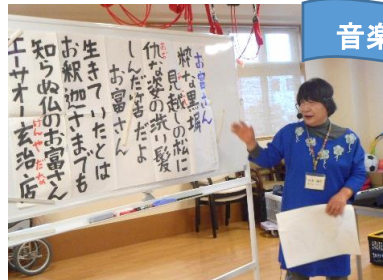 音楽
お富さん
粋な黒塀
見越しの松に
あだ
仇な姿の洗い髪
しんだ筈だよ
お富さん
生きていたとは
お釈迦さまでも
知らぬ仏のお富さん
げんやだな
エーサオー玄治店